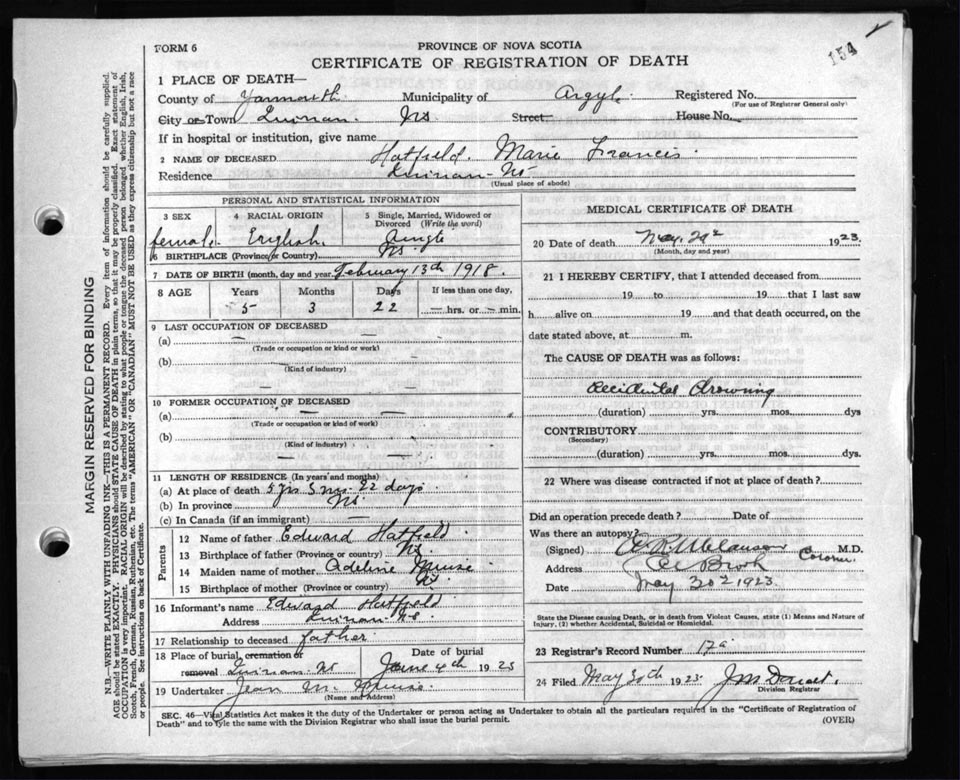 FORM 6
PROVINCE OF NOVA SCOTIA
154
CERTIFICATE OF REGISTRATION OF DEATH
1 PLACE OF DEATH—
County of Yarmouth Municipality of Argyle Registered No.
(For use of Registrar General only)
City or Town Quinan NS Street House No.
If in hospital or institution, give name
2 NAME OF DECEASED Hatfield Marie Francis
Residence Quinan NS
(Usual place of abode)
PERSONAL AND STATISTICAL INFORMATION
3 SEX 4 RACIAL ORIGIN 5 Single, Married, Widowed or Divorced (Write the word)
female English Single
6 BIRTHPLACE (Province or Country) NS
7 DATE OF BIRTH (month, day and year) February 13th 1918.
8 AGE Years Months Days If less than one day,
5 3 22 — hrs. or — min.
9 LAST OCCUPATION OF DECEASED
(a) —
(Trade or occupation or kind of work)
(b) —
(Kind of industry)
— —
10 FORMER OCCUPATION OF DECEASED
(a) — —
(Trade or occupation or kind of work)
(b) — —
(Kind of industry)
— —
11 LENGTH OF RESIDENCE (In years and months)
(a) At place of death 5 yrs 3 mos 22 days
(b) In province NS
(c) In Canada (if an immigrant) —
Parents
12 Name of father Edward Hatfield
13 Birthplace of father (Province or country) NS
14 Maiden name of mother Adeline Muise
15 Birthplace of mother (Province or country) NS
16 Informant's name Edward Hatfield
Address Quinan NS
17 Relationship to deceased father
18 Place of burial, cremation or removal Quinan NS Date of burial June 4th 1923
19 Undertaker Jean M. Muise
(Name and Address)
MEDICAL CERTIFICATE OF DEATH
20 Date of death May 1923.
(Month, day and year)
21 I HEREBY CERTIFY, that I attended deceased from
19 to 19 that I last saw
h alive on 19 and that death occurred, on the
date stated above, at m.
The CAUSE OF DEATH was as follows:
Accidental Drowning
(duration) yrs. mos. dys
CONTRIBUTORY
(Secondary)
(duration) yrs. mos. dys.
22 Where was disease contracted if not at place of death?
Did an operation precede death? Date of
Was there an autopsy?
(Signed) Coroner M.D.
Address Brook
Date May 30 1923
State the Disease causing Death, or in death from Violent Causes, state (1) Means and Nature of
Injury, (2) whether Accidental, Suicidal or Homicidal.
23 Registrar's Record Number 17a
24 Filed May 30th 1923
Division Registrar
SEC. 46—Vital Statistics Act makes it the duty of the Undertaker or person acting as Undertaker to obtain all the particulars required in the "Certificate of Registration of
Death" and to file the same with the Division Registrar who shall issue the burial permit.
(OVER)
MARGIN RESERVED FOR BINDING
N.B.—WRITE PLAINLY WITH UNFADING INK—THIS IS A PERMANENT RECORD. Every item of information should be carefully supplied.
AGE should be stated EXACTLY. PHYSICIANS should STATE CAUSE OF DEATH in plain terms, so that it may be properly classified. Exact statement of
OCCUPATION is very important. RACIAL ORIGIN will be described by stating to what people or tongue the deceased person belonged whether English, Irish,
Scotch, French, German, Russian, Ruthenian, etc. The terms "AMERICAN" OR "CANADIAN" MUST NOT BE USED as they express citizenship but not a race
or people. See instructions on back of Certificate.